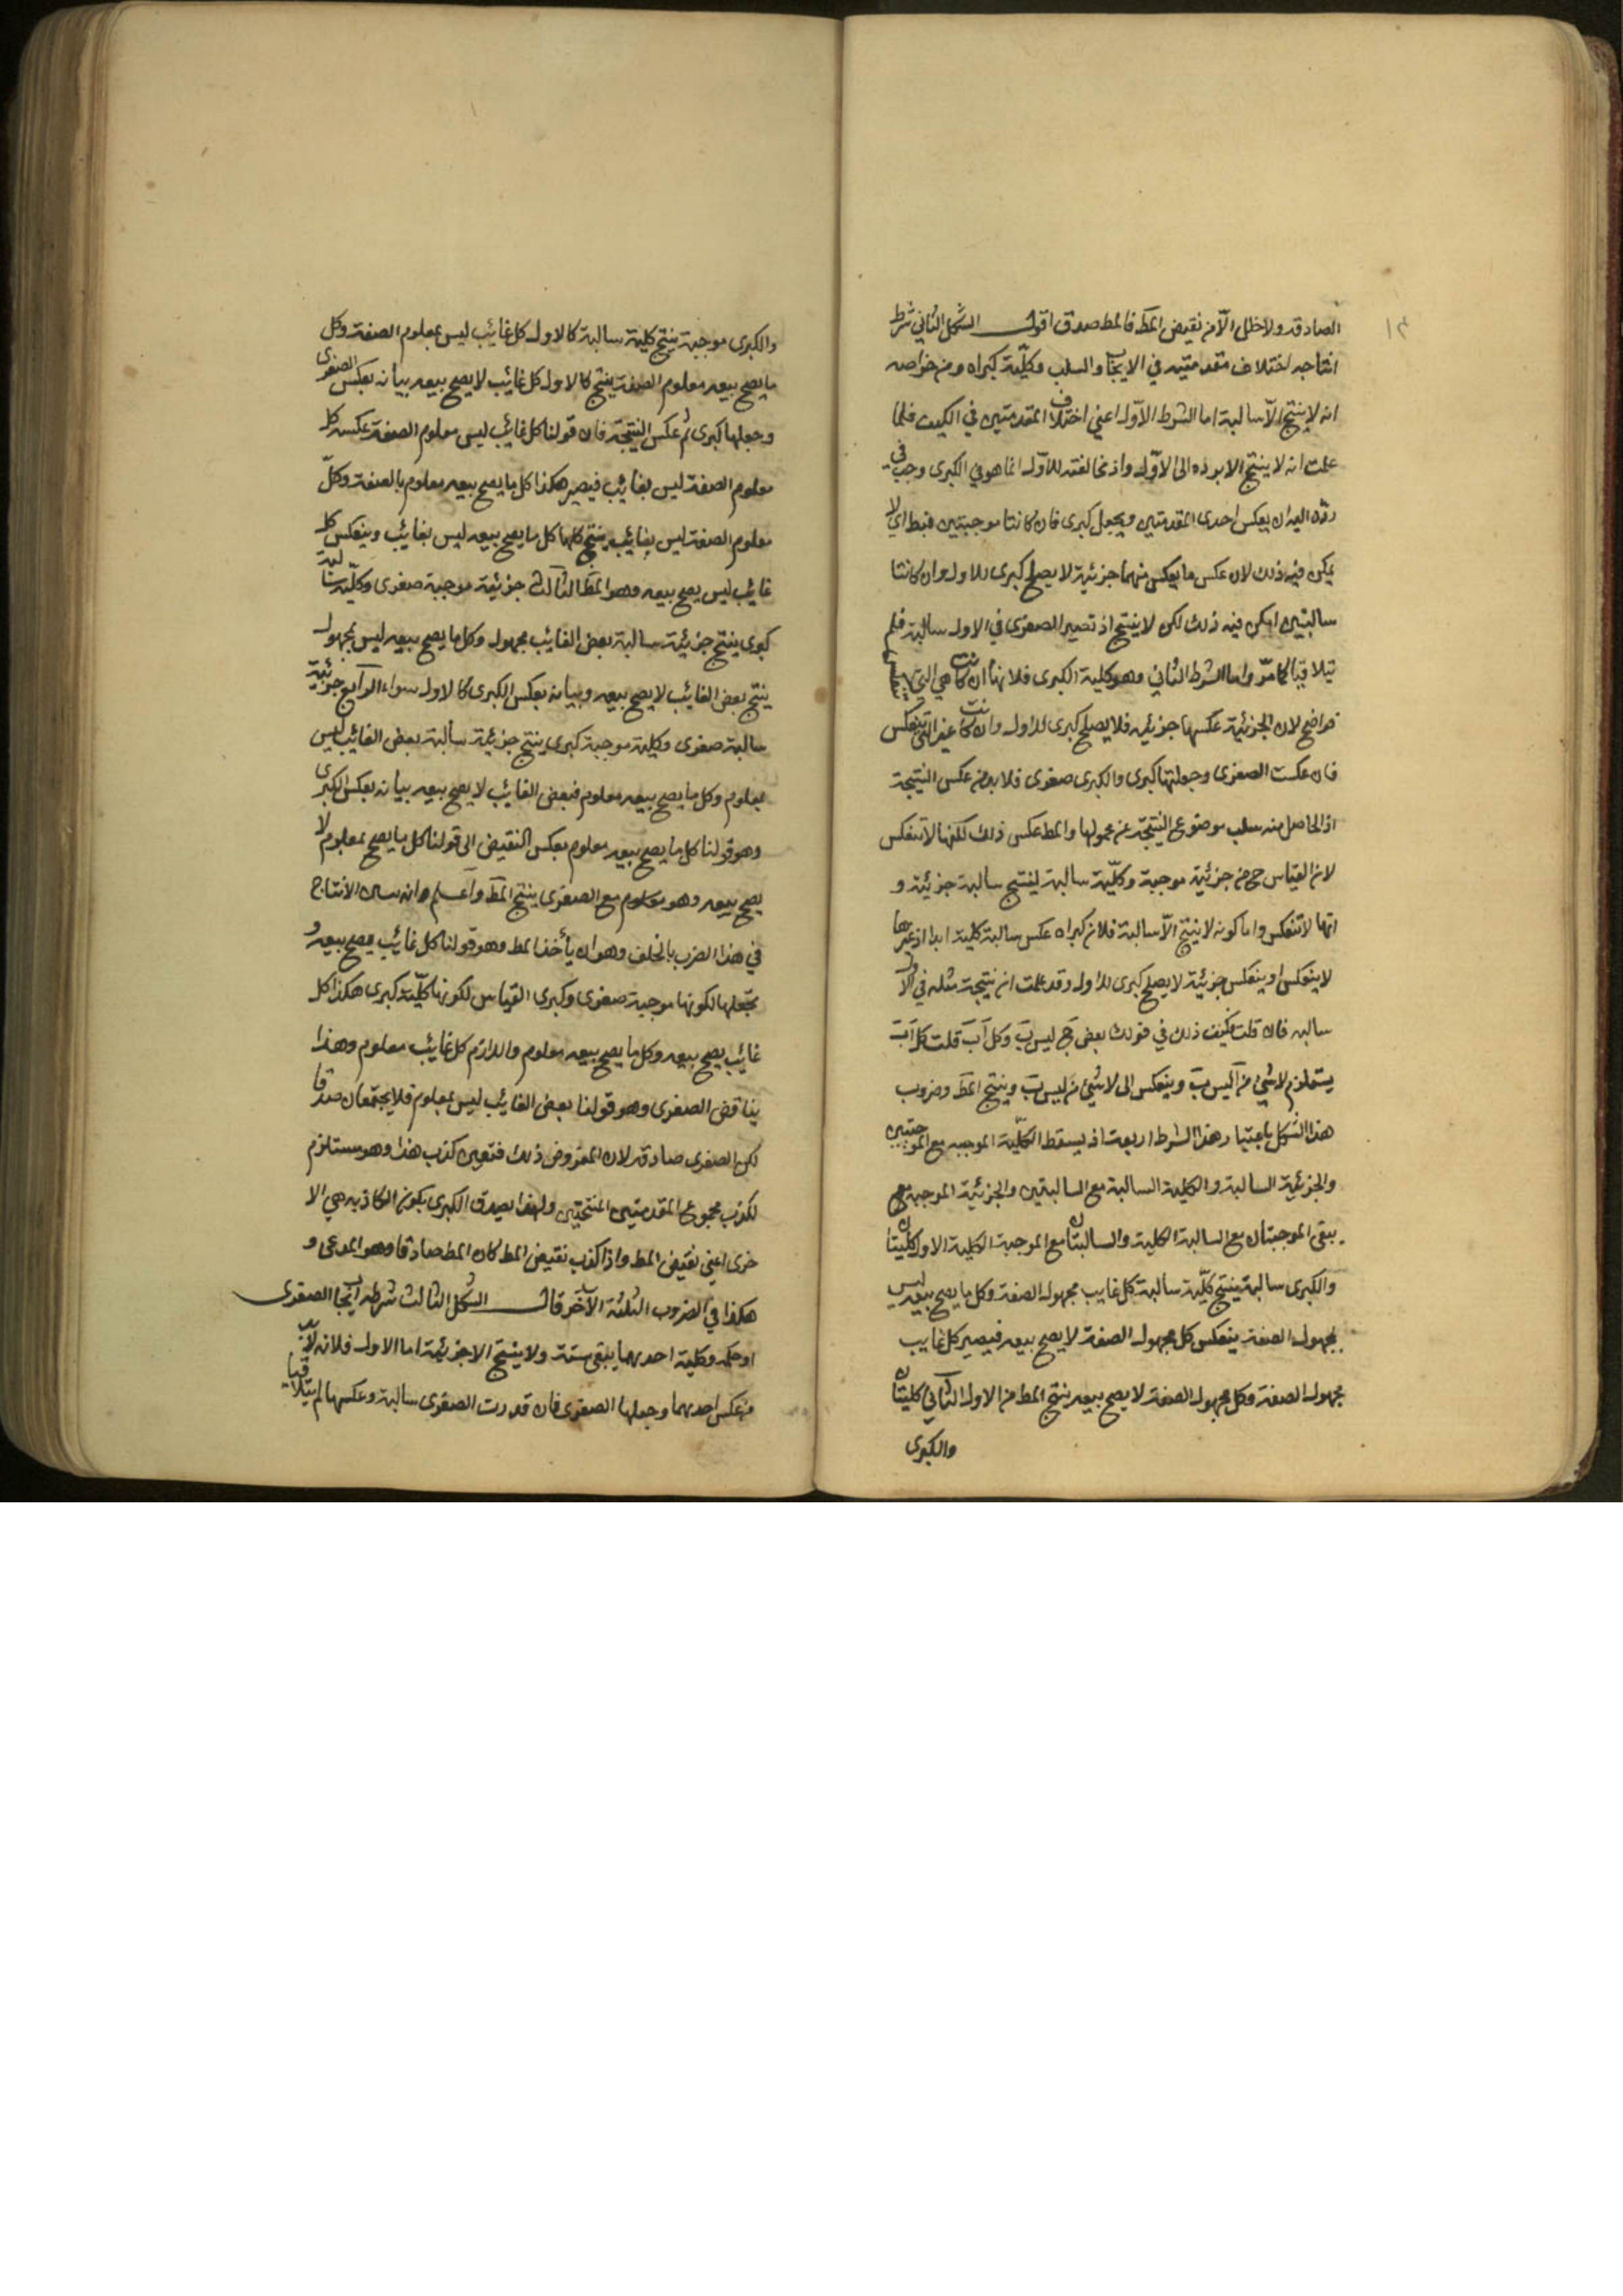 ١٣
الصادقه ولا خلل الّا من نقيض المط فالمط صدق اقول الشكل الثاني شرط
انتاجه اختلاف مقدمتيه في الايجاب والسلب وكلّية كبراه ومن خواصه
انه لا ينتج الّا سالبة اما الشرط الاوّل اعني اختلاف المقدمتين في الكيف فلما
علمت انه لا ينتج الا برده الى الاوّل واذ مخالفته للاوّل انما هو في الكبرى وجب في
ردّه اليه ان يعكس احدى المقدمتين ويجعل كبرى فان كانتا موجبتين فبط اي لا
يمكن فيه ذلك لان عكس ما يعكس منهما جزئية لا يصلح كبرى للاول وان كانتا
سالبتين امكن فيه ذلك لكن لا ينتج اذ تصير الصغرى في الاول سالبة فلم
يتلاقيا كما مرّ واما الشرط الثاني وهو كلية الكبرى فلانها ان كانت هي التي تنعكس
فواضح لان الجزئية عكسها جزئية فلا يصلح كبرى للاول وان كانت غير التي تنعكس
فان عكست الصغرى وجعلتها كبرى والكبرى صغرى فلا بد من عكس النتيجة
اذ الحاصل منه سلب موضوع النتيجة عن محمولها والمط عكس ذلك لكنها لا تنعكس
لان القياس ح من جزئية موجبة وكلّية سالبة لينتج سالبة جزئية و
انها لا تنعكس واما كونه لا ينتج الّا سالبة فلان كبراه عكس سالبة كلية ابدا اذ غيرها
لا ينعكس او ينعكس جزئية لا يصلح كبرى للاول وقد علمت ان نتيجة مثله في الاول
سالبه فان قلت فكيف ذلك في قولك بعض ج ليس ب وكل آ ب قلت كل آ ب
يستلزم لا شئ من آ ليس ب وينعكس الى لا شئ من ليس ب وينتج المط وضروب
هذا الشكل باعتبار هذا الشرط اربعة اذ يسقط الكلّية الموجبه مع الموجبتين
والجزئية السالبة والكلية السالبة مع السالبتين والجزئية الموجبة مع
يبقى الموجبتان مع السالبة الكلية والسالبتان مع الموجبة الكلية الاول كليتان
والكبرى سالبة ينتج كلّية سالبة كل غايب مجهول الصفة وكل ما يصح بيعه ليس
بمجهول الصفة ينعكس كل مجهول الصفة لا يصح بيعه فيصير كل غايب
مجهول الصفة وكل مجهول الصفة لا يصح بيعه ينتج المط من الاول الثاني كليتان
والكبرى
والكبرى موجبة ينتج كلية سالبة كالاول كل غائب ليس بمعلوم الصفة وكل
ما يصح بيعه معلوم الصفة ينتج كالاول كل غائب لا يصح بيعه بيانه بعكس الصغرى
وجعلها كبرى ثم عكس النتيجة فان قولنا كل غائب ليس معلوم الصفة عكسه كل
معلوم الصفة ليس بغائب فيصير هكذا كل ما يصح بيعه معلوم بالصفة وكلّ
معلوم الصفة ليس بغائب ينتج كلها كل ما يصح بيعه ليس بغائب وينعكس كل
غائب ليس يصح بيعه وهو المط الثالث جزئية موجبة صغرى وكلّية سالبة
كبرى ينتج جزئية سالبة بعض الغائب مجهول وكل ما يصح بيعه ليس بمجهول
ينتج بعض الغائب لا يصح بيعه وبيانه بعكس الكبرى كالاول سواء الرابع جزئية
سالبة صغرى وكلية موجبة كبرى ينتج جزئية سالبة بعض الغائب ليس
بمعلوم وكل ما يصح بيعه معلوم فبعض الغائب لا يصح بيعه بيانه بعكس الكبرى
وهو قولنا كل ما يصح بيعه معلوم بعكس النقيض الى قولنا كل ما يصح بمعلوم لا
يصح بيعه وهو معلوم مع الصغرى ينتج المط واعلم وانه بيان الانتاج
في هذا الضرب بالخلف وهو ان يأخذ المط وهو قولنا كل غائب يصح بيعه و
تجعلها لكونها موجبة صغرى وكبرى القياس لكونها كلّية كبرى هكذا كل
غائب يصح بيعه وكل ما يصح بيعه معلوم واللازم كل غائب معلوم وهذا
يناقض الصغرى وهو قولنا بعض الغائب ليس بمعلوم فلا يجتمعان صدقا
لكن الصغرى صادقة لان المفروض ذلك فتعين كذب هذا وهو مستلزم
لكذب مجموع المقدمتين المنتجتين ولهذا يصدق الكبرى بكون الكاذبه هي الا
خرى اعني نقيض المط واذا كذب نقيض المط كان المط صادقا وهو المدعى و
هكذا في الضروب الثلثة الآخر قال الشكل الثالث شرطه ايجاب الصغرى
او حكمه وكلية احديهما يبقى ستة ولا ينتج الا جزئية اما الاول فلانه لا بدّ
من عكس احديهما وجعلها الصغرى فان قدرت الصغرى سالبة وعكسها لم يتلاقيا